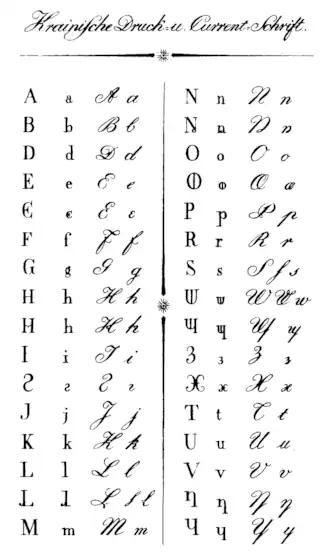 Krainiſche Druck-u. Current-Schrift.
A a A a
B b B b
D d D d
E e E e
Є є Є є
F f F f
G g G g
H h H h
H h H h
I i I i
Ƨ ƨ Ƨ ƨ
J j J j
K k K k
L l L l
L l
M m M m
N n N n
N n
O o O o
Ф ɵ
P p P p
R r R r
S s S ſ s
Ш ш W W w
Ч ч
З з З з
Ж x
T t T t
U u U u
V v V v
Ŋ ŋ Ŋ ŋ
Ч ч Ч ч